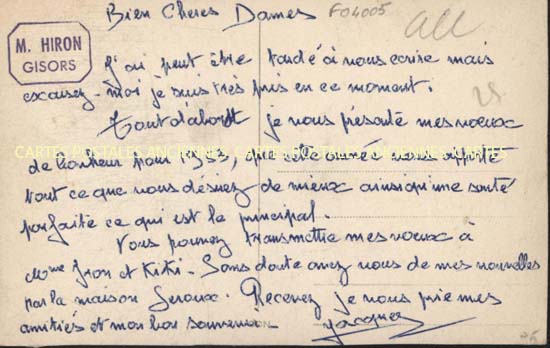 Bien Cheres Dames
F04005
M. HIRON
GISORS
J'ai peut être tardé à vous ecrire mais
excusez-moi je suis très pris en ce moment.
Tout d'abord je vous présente mes voeux
CARTES POSTALES ANCIENNES CARTES POSTALES ANCIENNES CARTES
de bonheur pour 1953, que cette année vous apporte
tout ce que vous désirez de mieux ainsi qu'une santé
parfaite ce qui est le principal.
Vous pouvez transmettre mes voeux à
et Kiki. Sans doute avez vous de mes nouvelles
par la maison Leroux. Recevez je vous prie mes
amitiés et mon bon souvenir.
Jacques